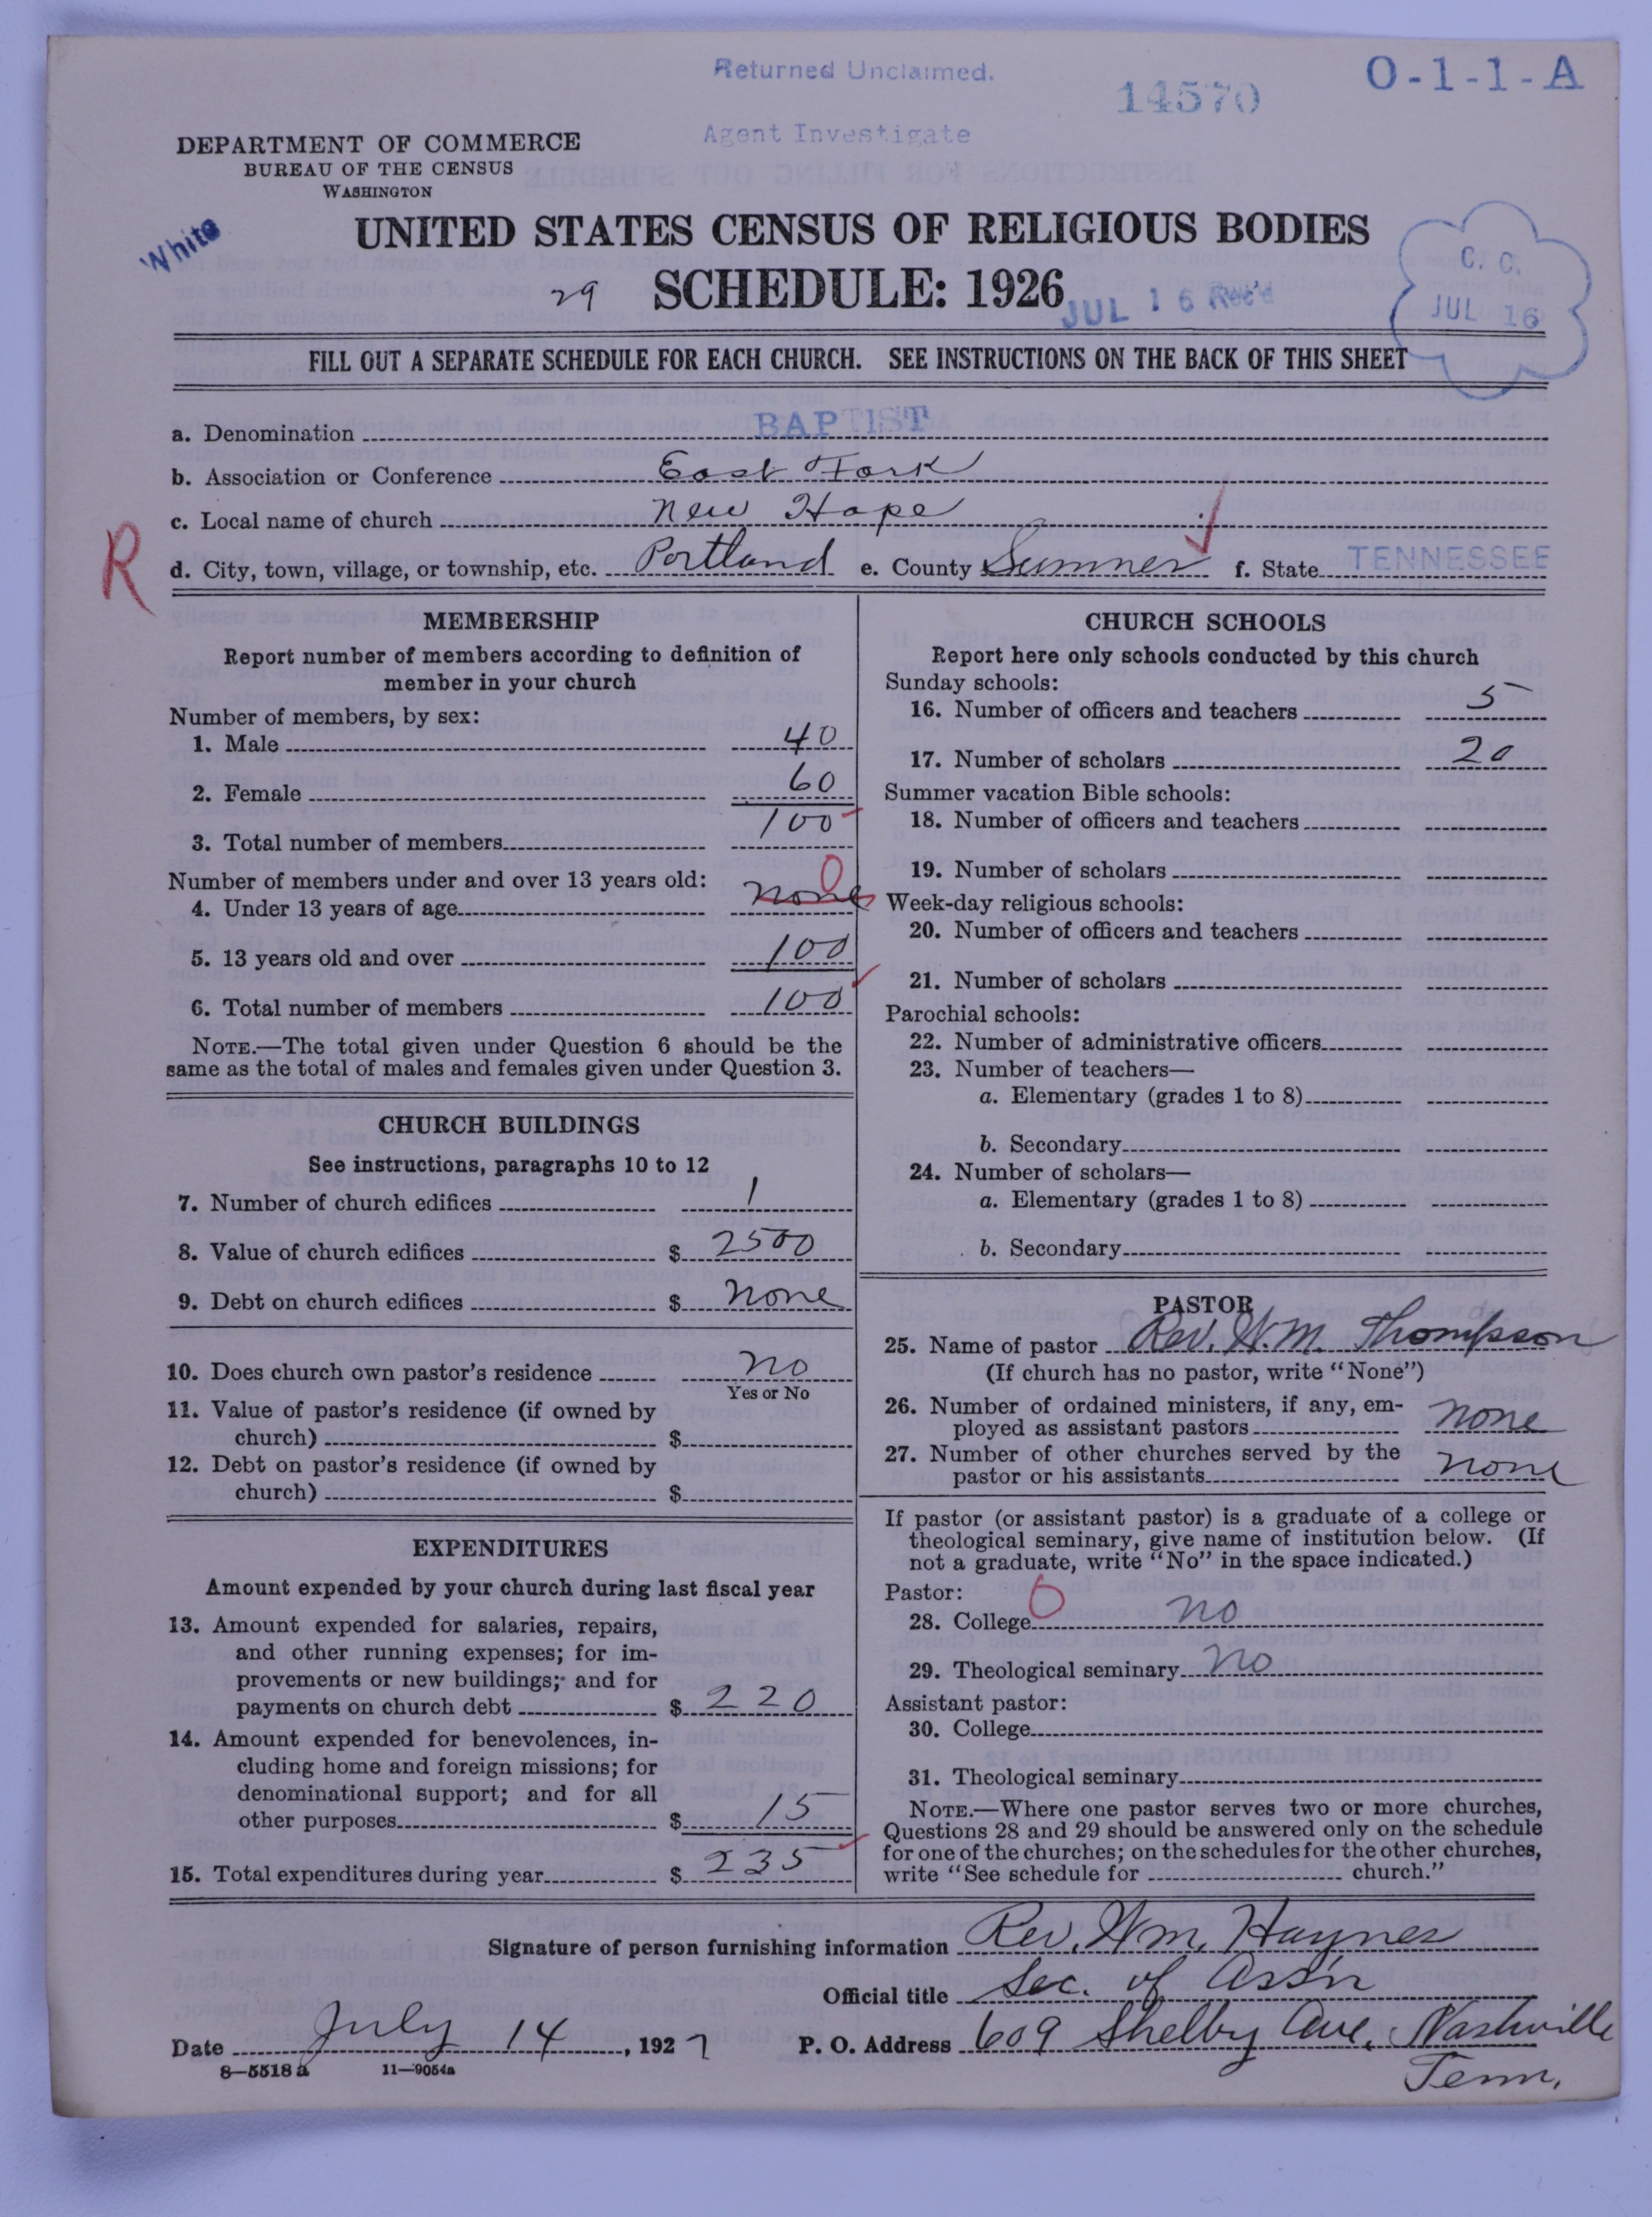 Returned Unclaimed.
O-1-1-A
14570
Agent Investigate
DEPARTMENT OF COMMERCE
BUREAU OF THE CENSUS
WASHINGTON
White
UNITED STATES CENSUS OF RELIGIOUS BODIES
29 SCHEDULE: 1926
JUL 16 Rec'd
C. C.
JUL 16
FILL OUT A SEPARATE SCHEDULE FOR EACH CHURCH. SEE INSTRUCTIONS ON THE BACK OF THIS SHEET
a. Denomination BAPTIST
b. Association or Conference East Fork
c. Local name of church New Hope
R
d. City, town, village, or township, etc. Portland e. County Sumner f. State TENNESSEE
MEMBERSHIP
Report number of members according to definition of
member in your church
Number of members, by sex:
1. Male 40
2. Female 60
3. Total number of members 100
Number of members under and over 13 years old:
4. Under 13 years of age none 0
5. 13 years old and over 100
6. Total number of members 100
NOTE.—The total given under Question 6 should be the
same as the total of males and females given under Question 3.
CHURCH BUILDINGS
See instructions, paragraphs 10 to 12
7. Number of church edifices 1
8. Value of church edifices $ 2500
9. Debt on church edifices $ none
10. Does church own pastor's residence no
Yes or No
11. Value of pastor's residence (if owned by
church) $
12. Debt on pastor's residence (if owned by
church) $
EXPENDITURES
Amount expended by your church during last fiscal year
13. Amount expended for salaries, repairs,
and other running expenses; for im-
provements or new buildings; and for
payments on church debt $ 220
14. Amount expended for benevolences, in-
cluding home and foreign missions; for
denominational support; and for all
other purposes $ 15
15. Total expenditures during year $ 235
CHURCH SCHOOLS
Report here only schools conducted by this church
Sunday schools:
16. Number of officers and teachers 5
17. Number of scholars 20
Summer vacation Bible schools:
18. Number of officers and teachers
19. Number of scholars
Week-day religious schools:
20. Number of officers and teachers
21. Number of scholars
Parochial schools:
22. Number of administrative officers
23. Number of teachers—
a. Elementary (grades 1 to 8)
b. Secondary
24. Number of scholars—
a. Elementary (grades 1 to 8)
b. Secondary
PASTOR
25. Name of pastor Rev. W.M. Thompson
(If church has no pastor, write "None")
26. Number of ordained ministers, if any, em-
ployed as assistant pastors none
27. Number of other churches served by the
pastor or his assistants none
If pastor (or assistant pastor) is a graduate of a college or
theological seminary, give name of institution below. (If
not a graduate, write "No" in the space indicated.)
Pastor:
28. College 0 no
29. Theological seminary no
Assistant pastor:
30. College
31. Theological seminary
NOTE.—Where one pastor serves two or more churches,
Questions 28 and 29 should be answered only on the schedule
for one of the churches; on the schedules for the other churches,
write "See schedule for church."
Signature of person furnishing information Rev. Wm. Haynes
Official title Sec. of Ass'n
Date July 14, 1927 P. O. Address 609 Shelby Ave. Nashville
Tenn.
8—5518 a 11—9054a